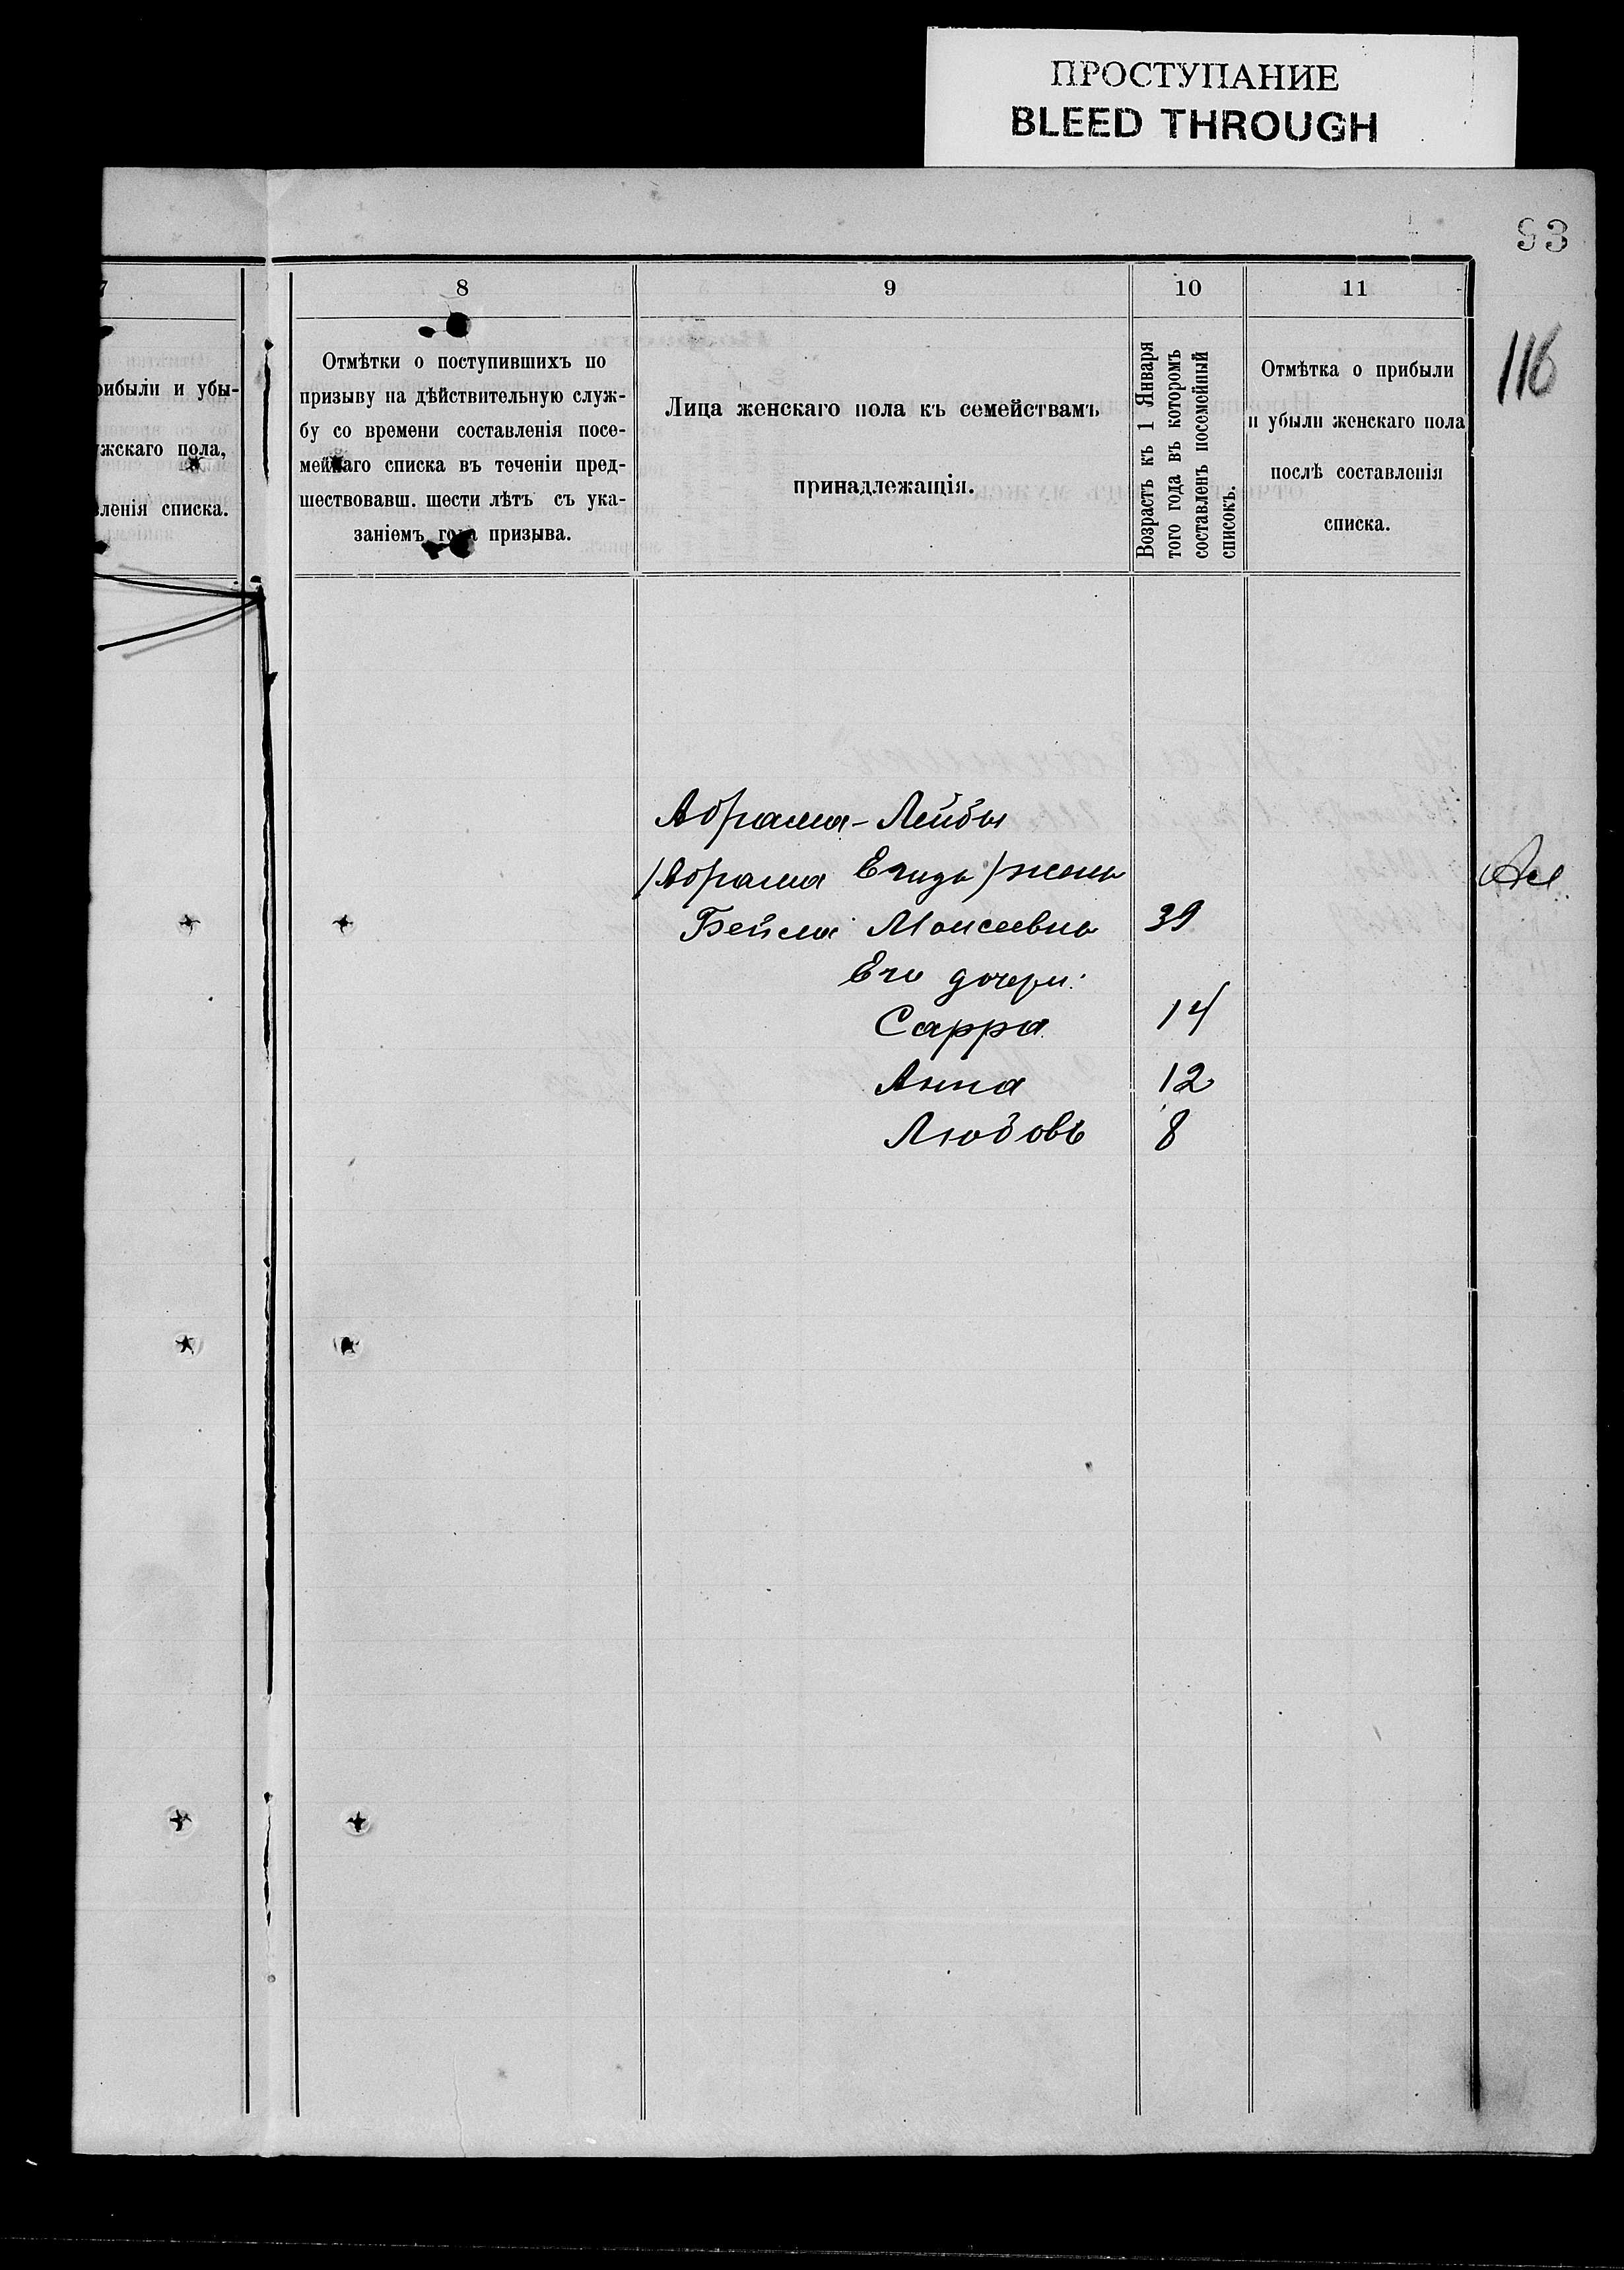 ПРОСТУПАНИЕ
BLEED THROUGH
93
116
7
рибыли и убы-
жскаго пола,
ленія списка.
8
Отмѣтки о поступившихъ по
призыву на дѣйствительную служ-
бу со времени составленія посе-
мейнаго списка въ теченіи пред-
шествовавш. шести лѣтъ съ ука-
заніемъ года призыва.
9
Лица женскаго пола къ семействамъ
принадлежащія.
10
Возрастъ къ 1 Января
того года въ которомъ
составленъ посемейный
списокъ.
11
Отмѣтка о прибыли
и убыли женскаго пола
послѣ составленія
списка.
Абрама-Лейбы
/Абрама / жена
Бейля Моисеевна 39
Его дочери:
Сарра 14
Анна 12
Любовь 8